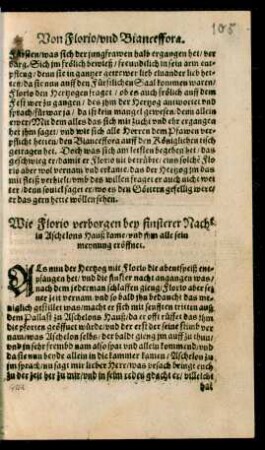 105
Von Florio/vnd Bianceffora.
Fürsten/was sich der jungfrawen halb ergangen het/ver
barg. Sich im frölich bewieß/freundtlich in sein arm ent-
pfieng/denn sie in gantzer getrewer lieb einander lieb het-
ten/da sie nun auff den Fürstlichen Saal kommen waren/
Florio den Hertzogen fraget/ob es auch frölich auff dem
Fest wer zu gangen/des jhm der Hertzog antwortet vnd
sprach/fürwar ja/da ist kein mangel gewesen/denn allein
ewer. Dem mit alles das sich mit zucht vnd ehr ergangen
het jhm saget/vnd wie sich alle Herren dem Pfawen ver-
pflicht hetten/den Bianceffora auff den Königlichen tisch
getragen het. Doch was sich am letsten begeben het/da
geschwieg er/damit er Florio nit betrübet/ein solchs Flo-
rio aber wol vernam vnd erkant/das der Hertzog jm das
mit fleiß verhielt/vnd des willen fraget er auch nicht wei-
ter/denn souiel saget er/wo es den Göttern gefellig were/
er das gern hette wöllen sehen.
Wie Florio verborgen bey finsterer Nacht
in Aschelons Hauß kame/vnd jhm alle sein
meynung eröffnet.
ALs nun der Hertzog mit Florio die abentspeiß ent-
pfangen het/vnd die finster nacht angangen was/
nach dem jederman schlaffen gieng/Florio aber sei
ner zeit vernam/vnd so bald jhn bedaucht das me-
niglich gestillet was/macht er sich mit senfften tritten auß
dem Pallast zu Aschelons Hauß/da er offt rüffet das jhm
die pforten geöffnet würd/vnd der erst der seine stim ver-
nam/was Aschelon selbs/der bald gieng jm auff zu thun/
vnd jn sehr fremd nam also spat vnd allein kommend/vnd
da sie nun beyde allein in die kammer kamen/Aschelon zu
jm sprach/nu sagt mir lieber Herr/was vrsach bringt euch
zu der zeit her zu mir/vnd in sein reden gdacht er/villeicht
hat